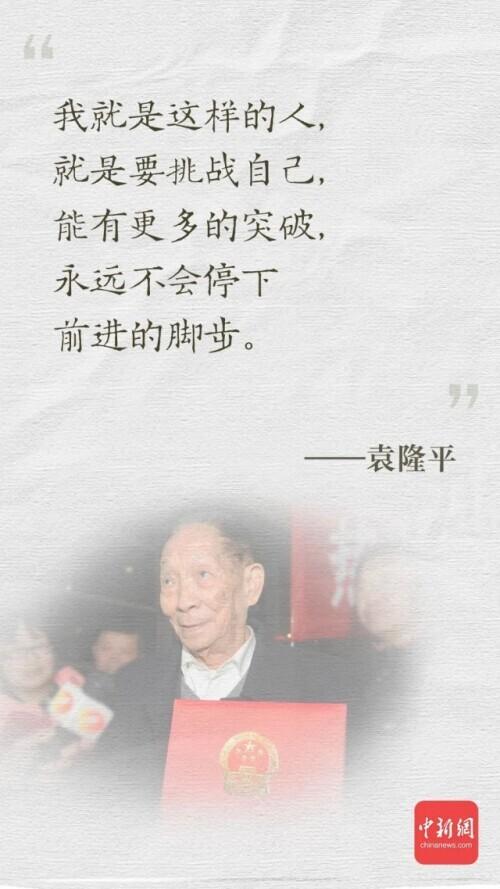 我就是这样的人，
就是要挑战自己，
能有更多的突破，
永远不会停下
前进的脚步。
——袁隆平
中新網
chinanews.com